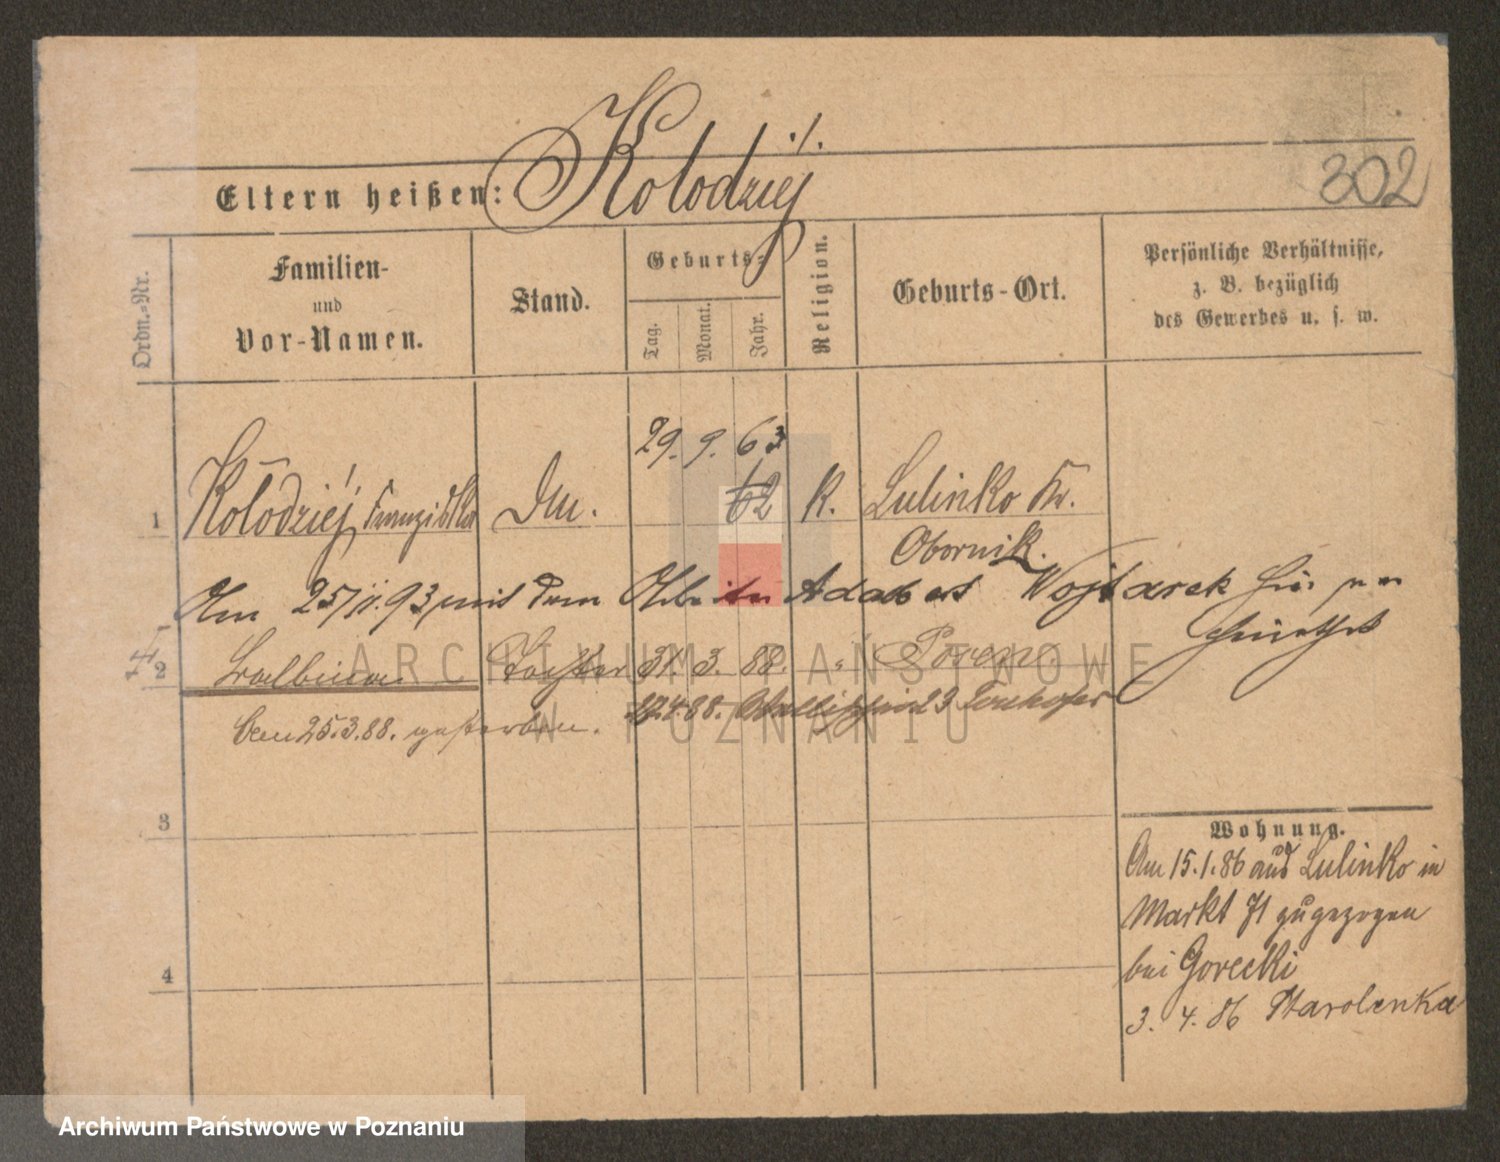 ./.
Eltern heißen: Kolodziej
302
Ordn.-Nr.
Familien-
und
Vor-Namen.
Stand.
Geburts-
Tag.
Monat.
Jahr.
Religion.
Geburts-Ort.
Persönliche Verhältnisse,
z. B. bezüglich
des Gewerbes u. s. w.
29. 9. 63
1 Kołodziej Franziska Dm. 62 K. Lulinko Kr.
Obornik.
Am 25/11.93 mit dem Arbeiter Adalbert Wojtarek
2 Tochter 31. 3. 88. " Posen.
25.3.88. gestorben. 17.4.88.
3
4
Wohnung.
Am 15.1.86 aus Lulinko in
Markt 71 zugezogen
bei Gorecki
3. 4. 86 Starolenka
ARCHIWUM PAŃSTWOWE
W POZNANIU
Archiwum Państwowe w Poznaniu